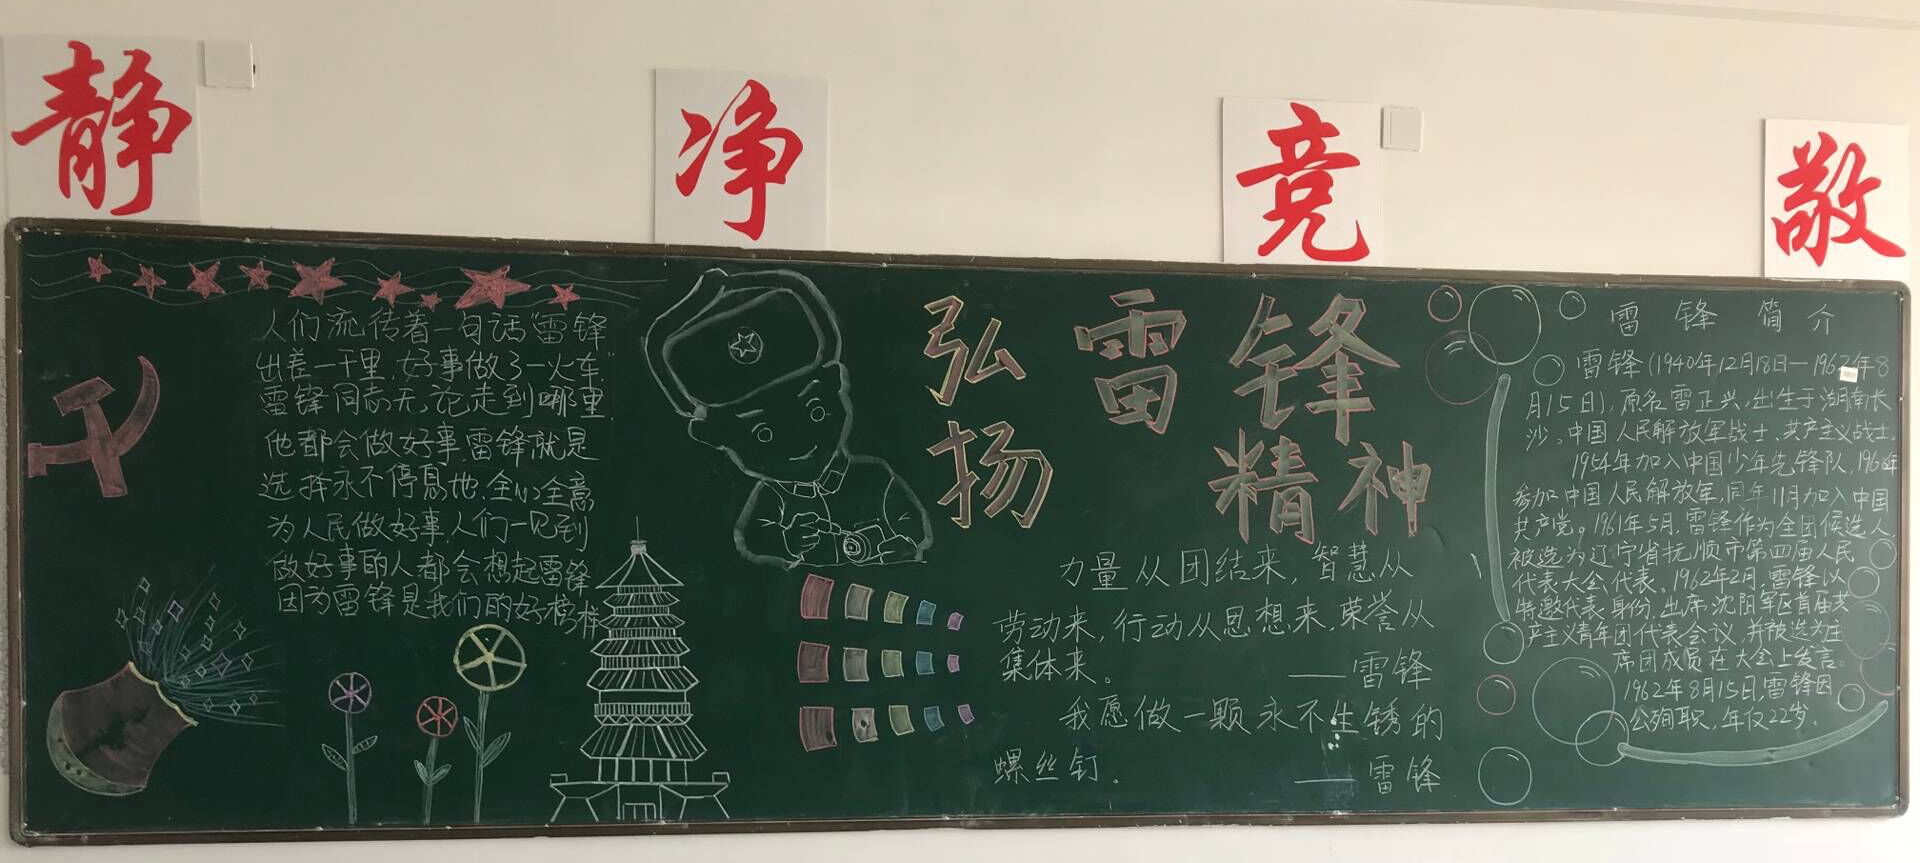 静 净 竞 敬
人们流传着一句话"雷锋
出差一千里,好事做了一火车.
雷锋同志无论走到哪里
他都会做好事.雷锋就是
选择永不停息地,全心全意
为人民做好事.人们一见到
做好事的人都会想起雷锋
因为雷锋是我们的好榜样
弘扬
雷锋
精神
力量从团结来,智慧从
劳动来,行动从思想来,荣誉从
集体来。
——雷锋
我愿做一颗永不生锈的
螺丝钉.
——雷锋
雷锋简介
雷锋(1940年12月18日—1962年8
月15日),原名雷正兴,出生于湖南长
沙,中国人民解放军战士、共产主义战士.
1954年加入中国少年先锋队,1960年
参加中国人民解放军,同年11月加入中国
共产党。1961年5月,雷锋作为全团候选人
被选为辽宁省抚顺市第四届人民
代表大会代表。1962年2月,雷锋以
特邀代表身份,出席沈阳军区首届共
产主义青年团代表会议,并被选为主
席团成员在大会上发言。
1962年8月15日,雷锋因
公殉职,年仅22岁.